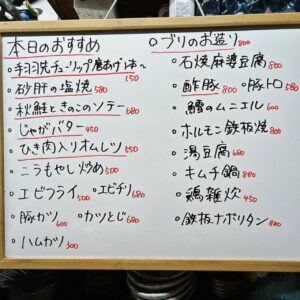 本日のおすすめ
・手羽先チューリップ唐あげ1本〜 150
・砂肝の塩焼 580
・秋鮭ときのこソテー 680
・じゃがバター 450
・ひき肉入りオムレツ 550
・ニラもやし炒め 500
・エビフライ 500 ・エビチリ 680
・豚カツ 600 ・カツとじ 680
・ハムカツ 300
・ブリのお造り 800
・石焼麻婆豆腐 800
・酢豚 800 ・豚トロ 580
・鱈のムニエル 600
・ホルモン鉄板焼 800
・湯豆腐 680
・キムチ鍋 880
・鶏雑炊 450
・鉄板ナポリタン 880